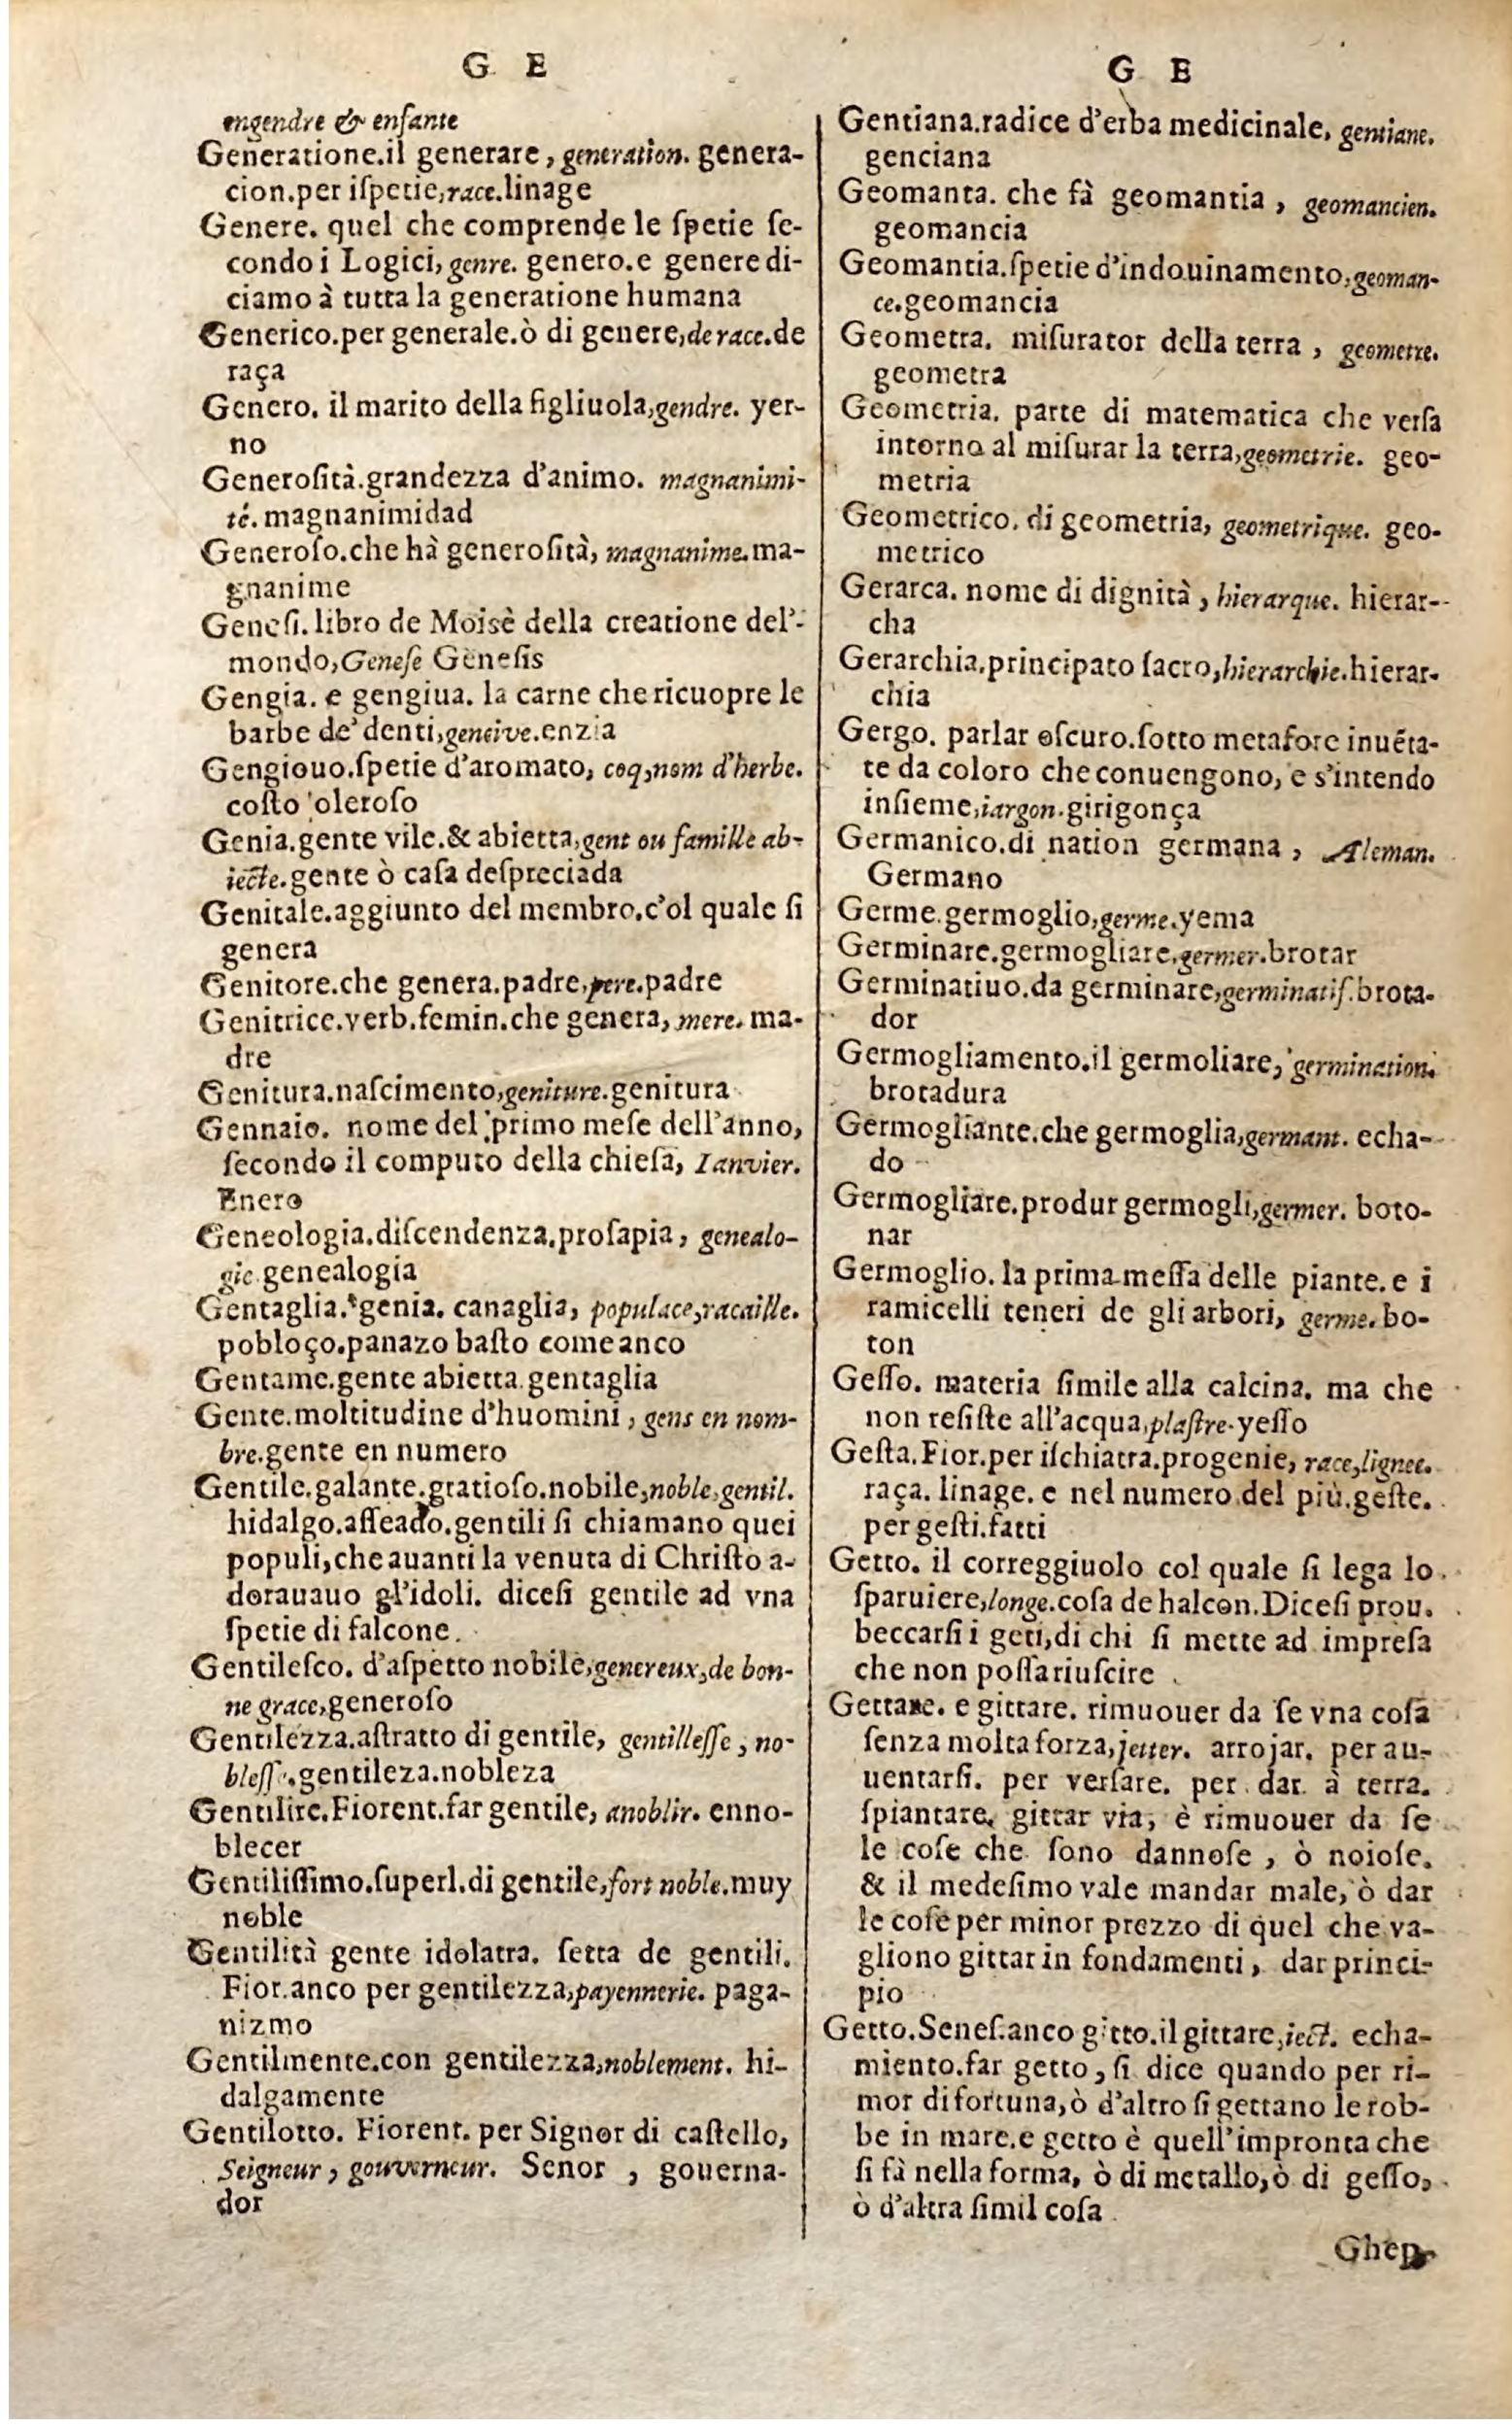 G E
engendre & enfante
Generatione.il generare, generation. genera-
cion.per iſpetie, race.linage
Genere. quel che comprende le ſpetie ſe-
condo i Logici, genre. genero.e genere di-
ciamo à tutta la generatione humana
Generico.per generale.ò di genere, de race.de
raça
Genero. il marito della figliuola, gendre. yer-
no
Generoſità.grandezza d'animo. magnanimi-
té. magnanimidad
Generoſo.che hà generoſità, magnanime.ma-
gnanime
Geneſi. libro de Moisè della creatione del'-
mondo, Geneſe Geneſis
Gengia. e gengiua. la carne che ricuopre le
barbe de' denti, gencive.enzia
Gengiouo.ſpetie d'aromato, coq, nom d'herbe.
coſto oleroſo
Genia.gente vile.& abietta, gent ou famille ab-
iecte.gente ò caſa deſpreciada
Genitale.aggiunto del membro.c'ol quale ſi
genera
Genitore.che genera.padre, pere.padre
Genitrice.verb.femin.che genera, mere. ma-
dre
Genitura.naſcimento, geniture.genitura
Gennaio. nome del primo meſe dell'anno,
ſecondo il computo della chieſa, Ianvier.
Enero
Geneologia.diſcendenza.proſapia, genealo-
gie genealogia
Gentaglia. genia. canaglia, populace, racaille.
pobloço.panazo baſto come anco
Gentame.gente abietta gentaglia
Gente.moltitudine d'huomini, gens en nom-
bre.gente en numero
Gentile.galante.gratioſo.nobile, noble, gentil.
hidalgo.aſſeado.gentili ſi chiamano quei
populi, che auanti la venuta di Chriſto a-
dorauauo gl'idoli. diceſi gentile ad vna
ſpetie di falcone.
Gentileſco. d'aſpetto nobile, genereux, de bon-
ne grace, generoſo
Gentilezza.aſtratto di gentile, gentilleſſe, no-
bleſſe.gentileza.nobleza
Gentilire.Fiorent.far gentile, anoblir. enno-
blecer
Gentiliſſimo.ſuperl.di gentile, fort noble.muy
noble
Gentilità gente idolatra. ſetta de gentili.
Fior.anco per gentilezza, payennerie. paga-
nizmo
Gentilmente.con gentilezza, noblement. hi-
dalgamente
Gentilotto. Fiorent. per Signor di caſtello,
Seigneur, gouverneur. Senor, gouerna-
dor
G E
Gentiana.radice d'erba medicinale, gentiane.
genciana
Geomanta. che fà geomantia, geomancien.
geomancia
Geomantia.ſpetie d'indouinamento, geoman-
ce.geomancia
Geometra. miſurator della terra, geometre.
geometra
Geometria. parte di matematica che verſa
intorno al miſurar la terra, geometrie. geo-
metria
Geometrico. di geometria, geometrique. geo-
metrico
Gerarca. nome di dignità, hierarque. hierar-
cha
Gerarchia.principato ſacro, hierarchie.hierar-
chia
Gergo. parlar oſcuro.ſotto metafore inuēta-
te da coloro che conuengono, e s'intendo
inſieme, iargon.girigonça
Germanico.di nation germana, Aleman.
Germano
Germe.germoglio, germe.yema
Germinare.germogliare, germer.brotar
Germinatiuo.da germinare, germinatif.brota-
dor
Germogliamento.il germoliare, germination.
brotadura
Germogliante.che germoglia, germant. echa-
do
Germogliare.produr germogli, germer. boto-
nar
Germoglio. la prima meſſa delle piante. e i
ramicelli teneri de gli arbori, germe. bo-
ton
Geſſo. materia ſimile alla calcina. ma che
non reſiſte all'acqua, plaſtre.yeſſo
Geſta.Fior.per iſchiatra.progenie, race, lignee.
raça. linage. e nel numero del più.geſte.
per geſti.fatti
Getto. il correggiuolo col quale ſi lega lo
ſparuiere, longe.coſa de halcon.Diceſi prou.
beccarſi i geti, di chi ſi mette ad impreſa
che non poſſa riuſcire
Gettare. e gittare. rimuouer da ſe vna coſa
ſenza molta forza, jetter. arrojar. per au-
uentarſi. per verſare. per dar à terra.
ſpiantare. gittar via, è rimuouer da ſe
le coſe che ſono dannoſe, ò noioſe.
& il medeſimo vale mandar male, ò dar
le coſe per minor prezzo di quel che va-
gliono gittar in fondamenti, dar princi-
pio
Getto.Seneſ.anco gitto.il gittare, iect. echa-
miento.far getto, ſi dice quando per ri-
mor di fortuna, ò d'altro ſi gettano le rob-
be in mare.e getto è quell'impronta che
ſi fà nella forma, ò di metallo, ò di geſſo,
ò d'altra ſimil coſa